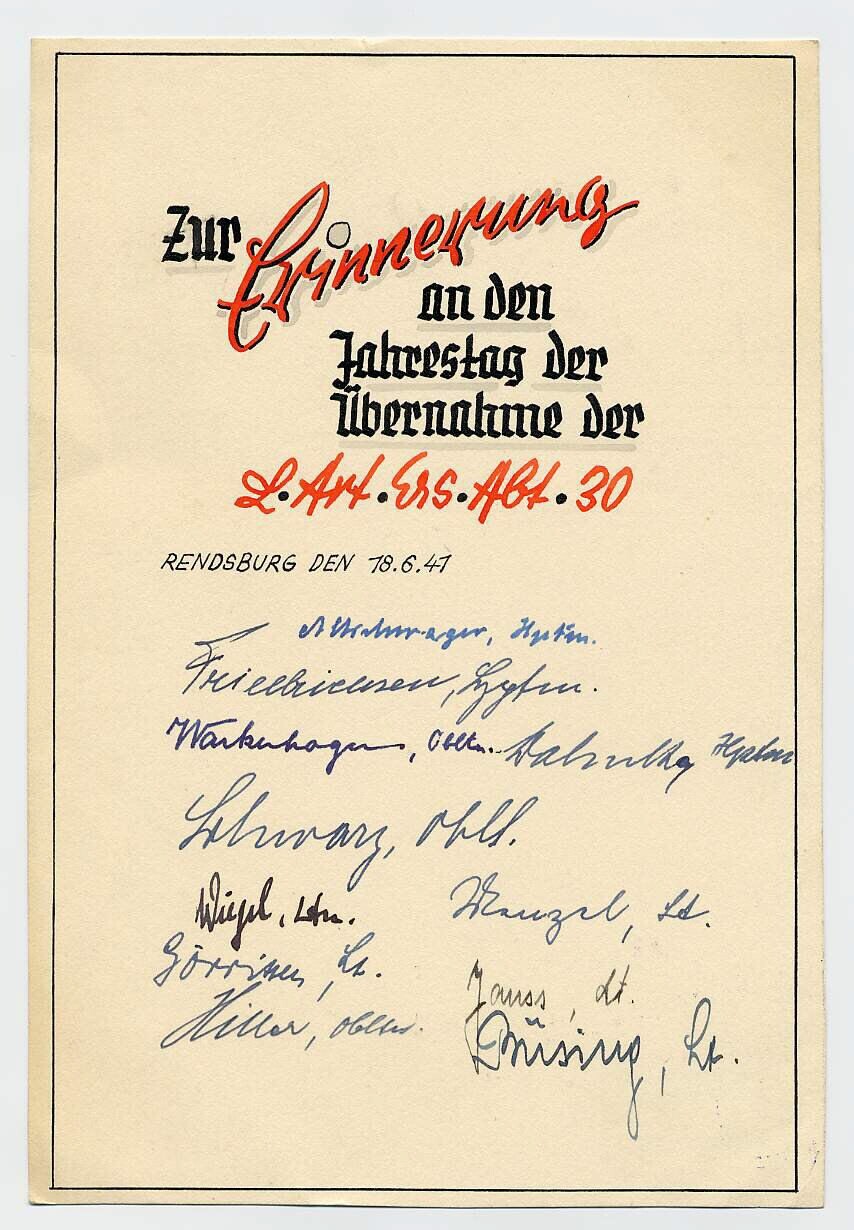 Zur Erinnerung
an den
Jahrestag der
Übernahme der
L. Art. Ers. Abt. 30
RENDSBURG DEN 18.6.41
Hptm.
Friedrichsen, Hptm.
Warkenhagen, Obltn. Hptm
Schwarz, Oblt.
Wiegel, Ltn. Wenzel, Lt.
Görrissen, Lt.
Jauss, Lt.
Hiller, Obltn.
Büsing, Lt.